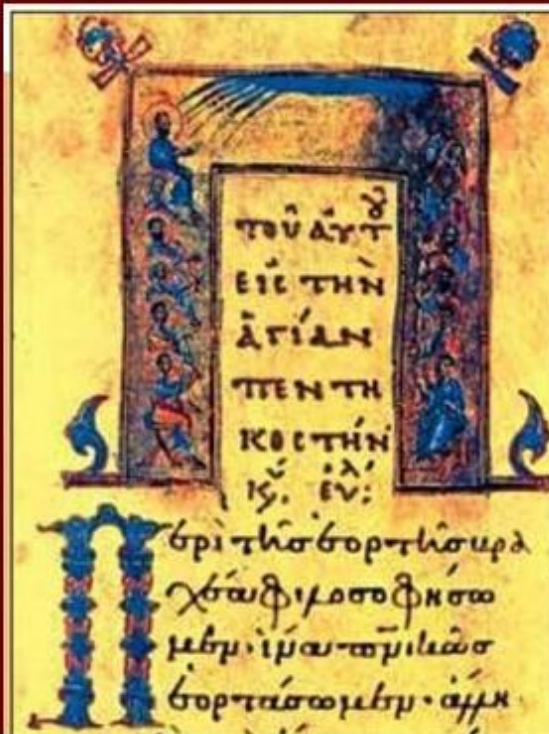 ΤΟΥ ΑΥΤΟΥ
ΕΙΣ ΤΗΝ
ἉΓΙΑΝ
ΠΕΝΤΗ
ΚΟΣΤΗΝ
εὐλ:
Περὶ τῆς ἑορτῆς βρα
χέα φιλοσοφήσω
μεν· ἵνα πνικῶς
ἑορτάσωμεν· ἄλλη